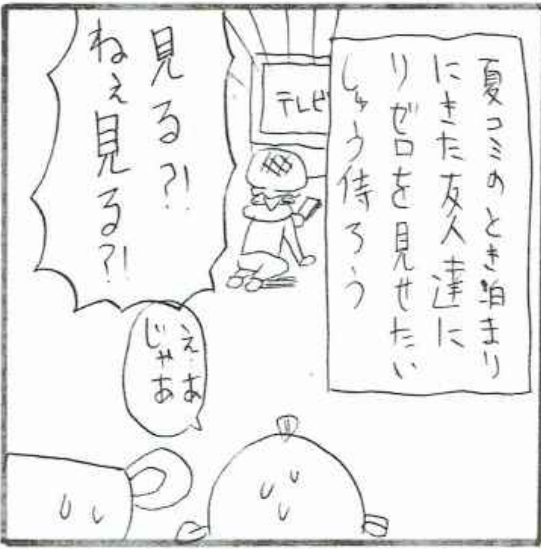 夏コミのとき泊まり
にきた友人達に
リゼロを見せたい
しゅう侍ろう
テレビ
見る?!
ねぇ見る?!
え…あ
じゃあ